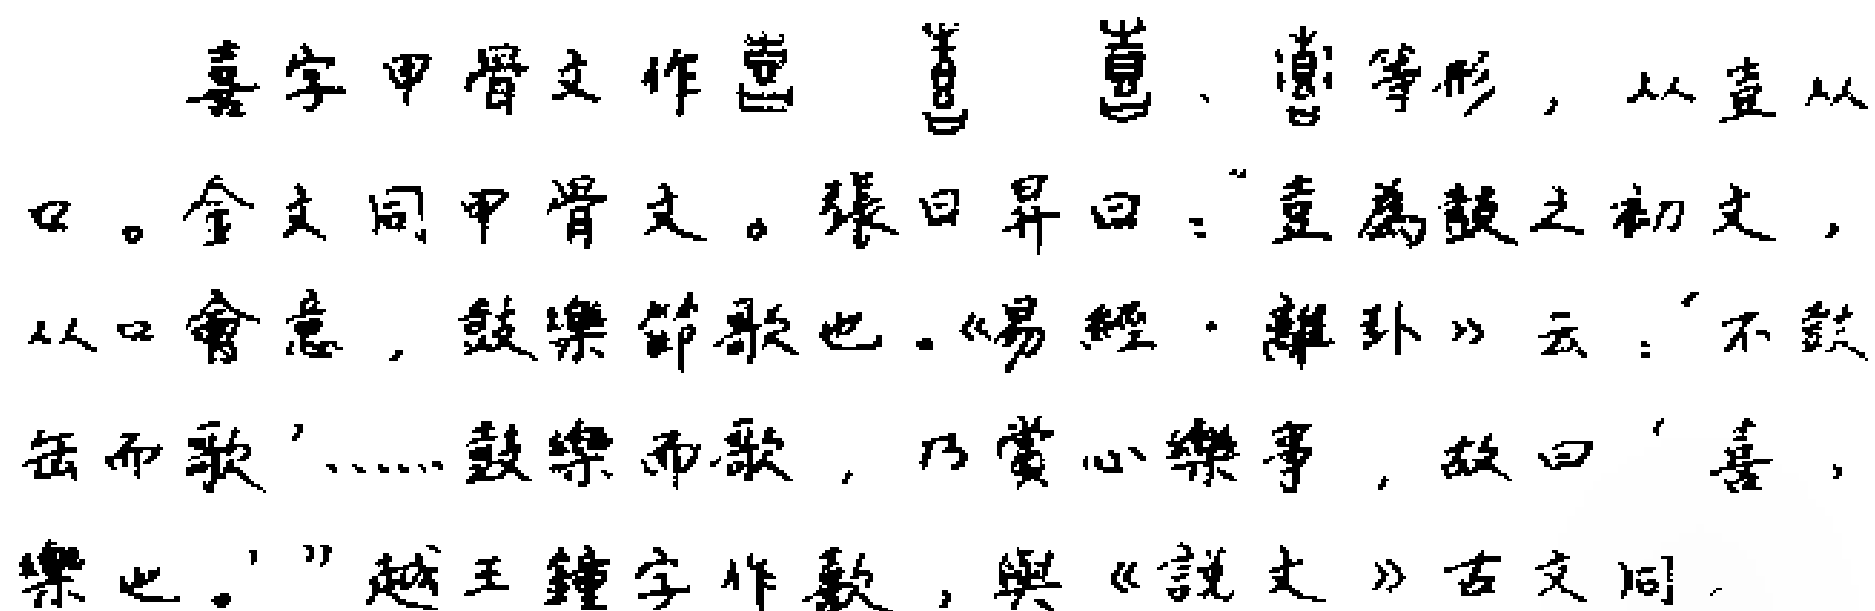 喜字甲骨文作、等形，从壴从
口。金文同甲骨文。張日昇曰：“壴為鼓之初文，
从口會意，鼓樂節歌也。《易經·離卦》云：‘不鼓
缶而歌’……鼓樂而歌，乃賞心樂事，故曰‘喜，
樂也。’”越王鐘字作歖，與《説文》古文同